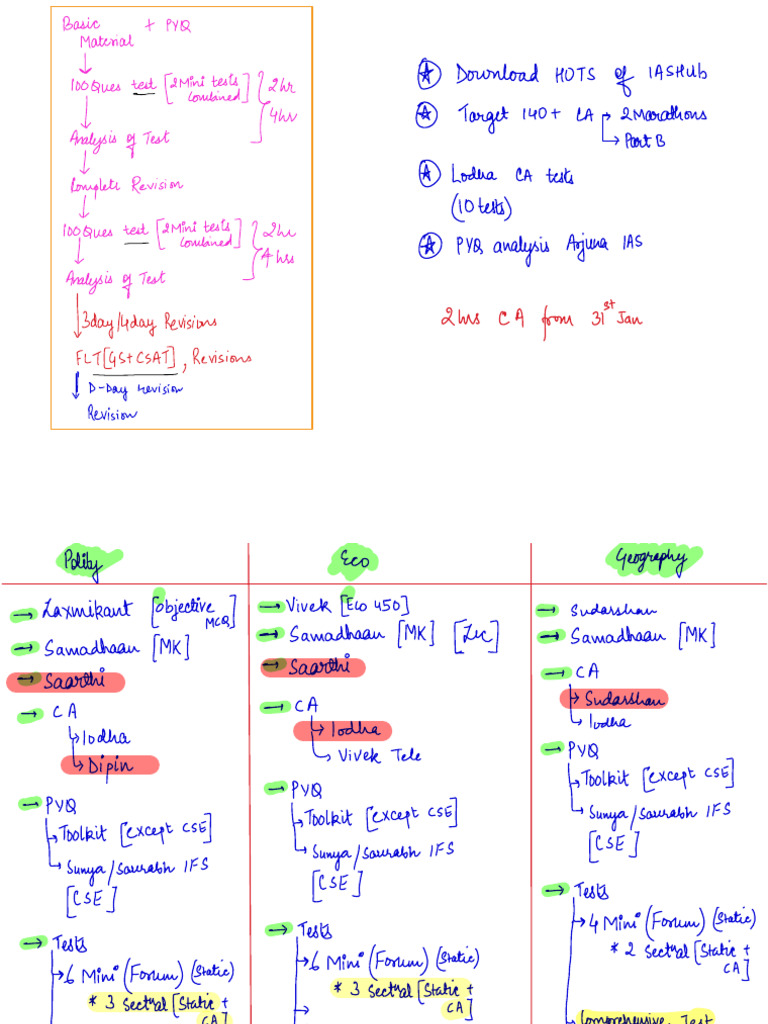 Basic + PYQ
Material
100 Ques test [2 Mini tests Combined] 2hr
4hr
Analysis of Test
Complete Revision
100 Ques test [2 Mini tests Combined] 2hr
4 hrs
Analysis of Test
3day/4day Revisions
FLT [GS+CSAT], Revisions
D-Day revision
Revision
Download HOTS of IASHub
Target 140+ CA → 2 Marathons
→ Part B
Lodha CA tests
(10 tests)
PYQ analysis Arjuna IAS
2hrs CA from 31st Jan
Polity
→ Laxmikant [Objective MCQ]
→ Samadhaan [MK]
→ Saarthi
→ CA
→ lodha
→ Dipin
→ PYQ
→ Toolkit [except CSE]
→ Sunya/Saurabh IFS
[CSE]
→ Tests
→ 6 Mini (Forum) (Static)
* 3 Sectral [Static + CA]
Eco
→ Vivek [Eco 450]
→ Samadhaan [MK] [Lec]
→ Saarthi
→ CA
→ lodha
→ Vivek Tele
→ PYQ
→ Toolkit [except CSE]
→ Sunya/Saurabh IFS
[CSE]
→ Tests
→ 6 Mini (Forum) (Static)
* 3 Sectral [Static + CA]
→
Geography
→ Sudarshan
→ Samadhaan [MK]
→ CA
→ Sudarshan
→ lodha
→ PYQ
→ Toolkit [except CSE]
→ Sunya/Saurabh IFS
[CSE]
→ Tests
→ 4 Mini (Forum) (Static)
* 2 Sectral [Static + CA]
Comprehensive Test